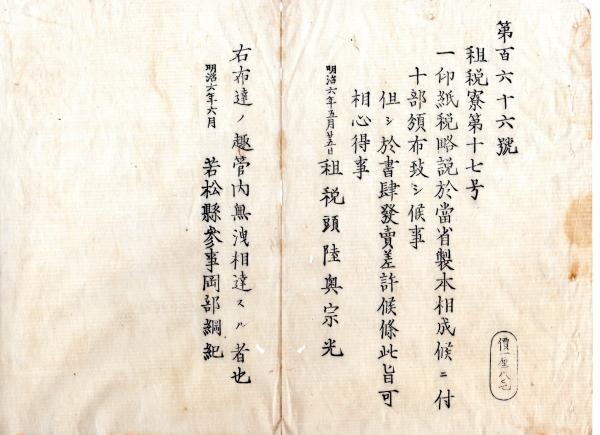 第百六十六號
租税寮第十七号
一印紙税略説於當省製本相成候ニ付
十部頒布致シ候事
但シ於書肆發賣差許候條此旨可
相心得事
明治六年五月廿五日 租税頭陸奥宗光
右布達ノ趣管内無洩相達スル者也
明治六年六月 若松縣參事岡部綱紀